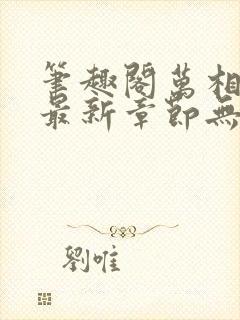 筆趣閣萬相
最新章節無
劉唯